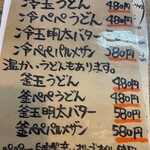 冷玉うどん 480円
冷ぺぺうどん 480円
冷玉明太バター 580円
冷ぺぺパルメザン 580円
温かいうどんもあります。
釜玉うどん 480円
釜ぺぺうどん 480円
釜玉明太バター 580円
釜ぺぺパルメザン 580円